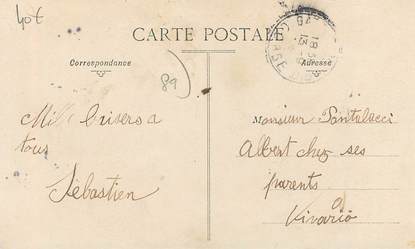 40f
CARTE POSTALE
Correspondance
Adresse
89
Mille baisers a
tous
Sébastien
Monsieur Pantalacci
Albert chez ses
parents
Vivario